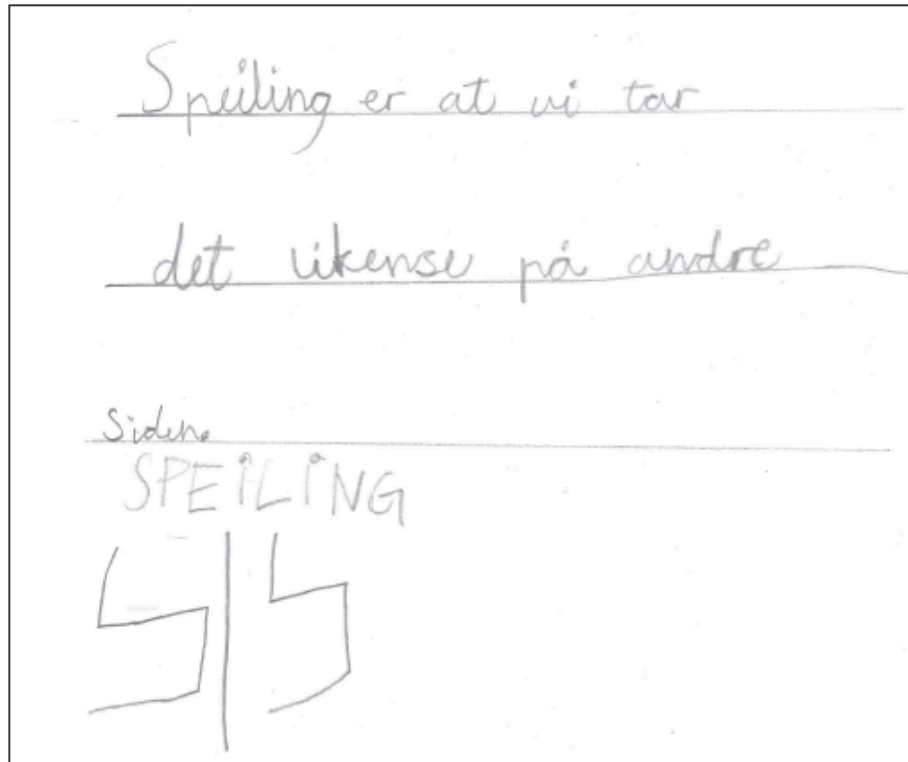 Speiling er at vi tar
det likense på andre
siden.
SPEILING